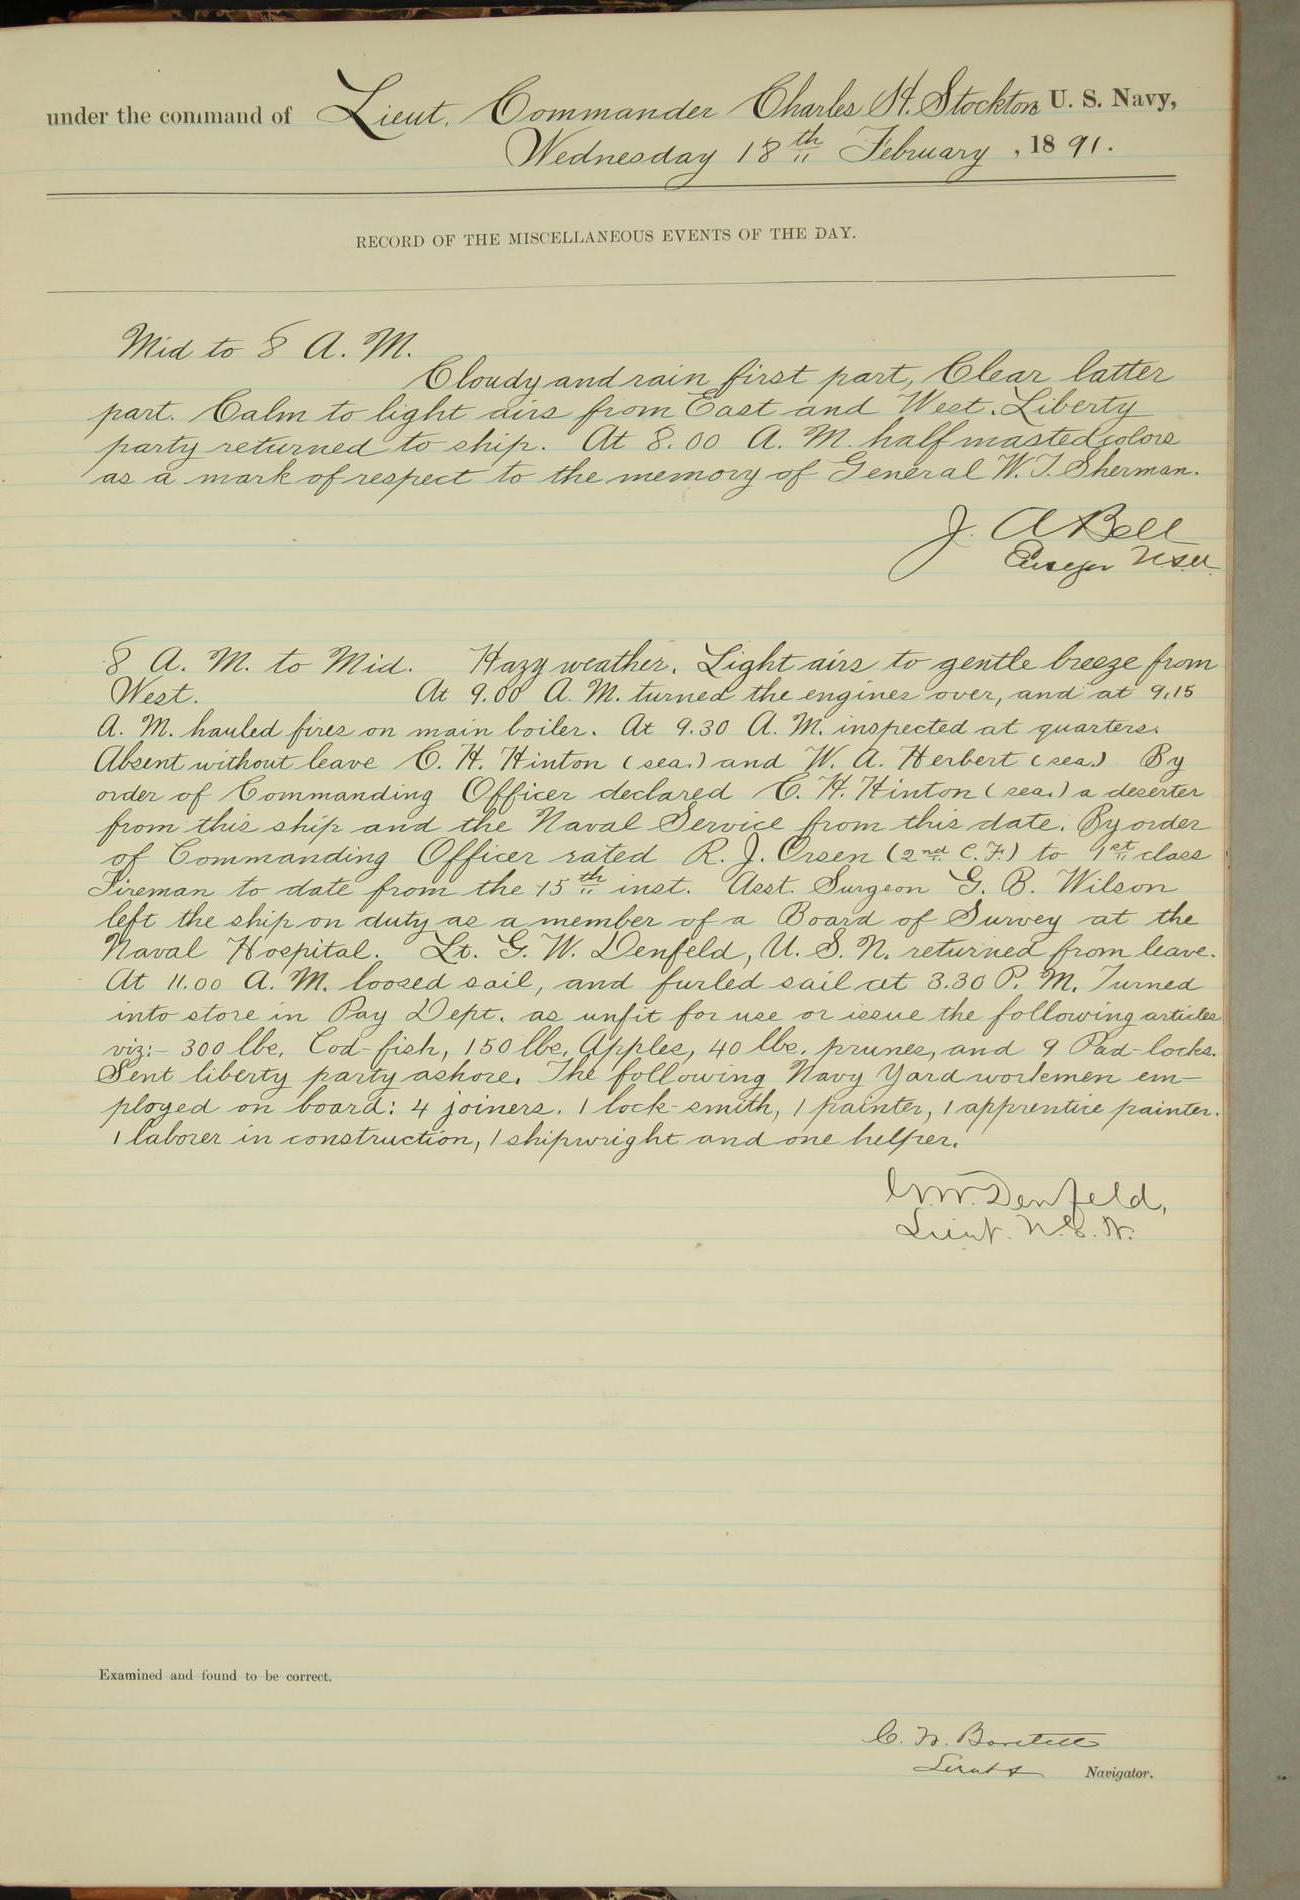 under the command of Lieut. Commander Charles H. Stockton U. S. Navy,
Wednesday 18th February , 1891.
RECORD OF THE MISCELLANEOUS EVENTS OF THE DAY.
Mid to 8 A. M.
Cloudy and rain first part, Clear latter
part. Calm to light airs from East and West. Liberty
party returned to ship. At 8.00 A. M. half masted colors
as a mark of respect to the memory of General W. T. Sherman.
J. A Bell
Ensign U.S.N.
8 A. M. to Mid. Hazy weather. Light airs to gentle breeze from
West. At 9.00 A. M. turned the engines over, and at 9.15
A. M. hauled fires on main boiler. At 9.30 A. M. inspected at quarters.
Absent without leave C. H. Hinton (sea.) and W. A. Herbert (sea.) By
order of Commanding Officer declared C. H. Hinton (sea.) a deserter
from this ship and the Naval Service from this date. By order
of Commanding Officer rated R. J. Orsen (2nd C. F.) to 1st class
Fireman to date from the 15th inst. Asst. Surgeon G. B. Wilson
left the ship on duty as a member of a Board of Survey at the
Naval Hospital. Lt. G. W. Denfeld, U. S. N. returned from leave.
At 11.00 A. M. loosed sail, and furled sail at 3.30 P. M. Turned
into store in Pay Dept. as unfit for use or issue the following articles
viz:- 300 lbs. Cod-fish, 150 lbs. Apples, 40 lbs. prunes, and 9 Pad-locks.
Sent liberty party ashore. The following Navy Yard workmen em-
ployed on board: 4 joiners. 1 lock-smith, 1 painter, 1 apprentice painter.
1 laborer in construction, 1 shipwright and one helper.
G.W. Denfeld,
Lieut. U.S.N.
Examined and found to be correct.
C. W. Bartlett
Lieut Navigator.